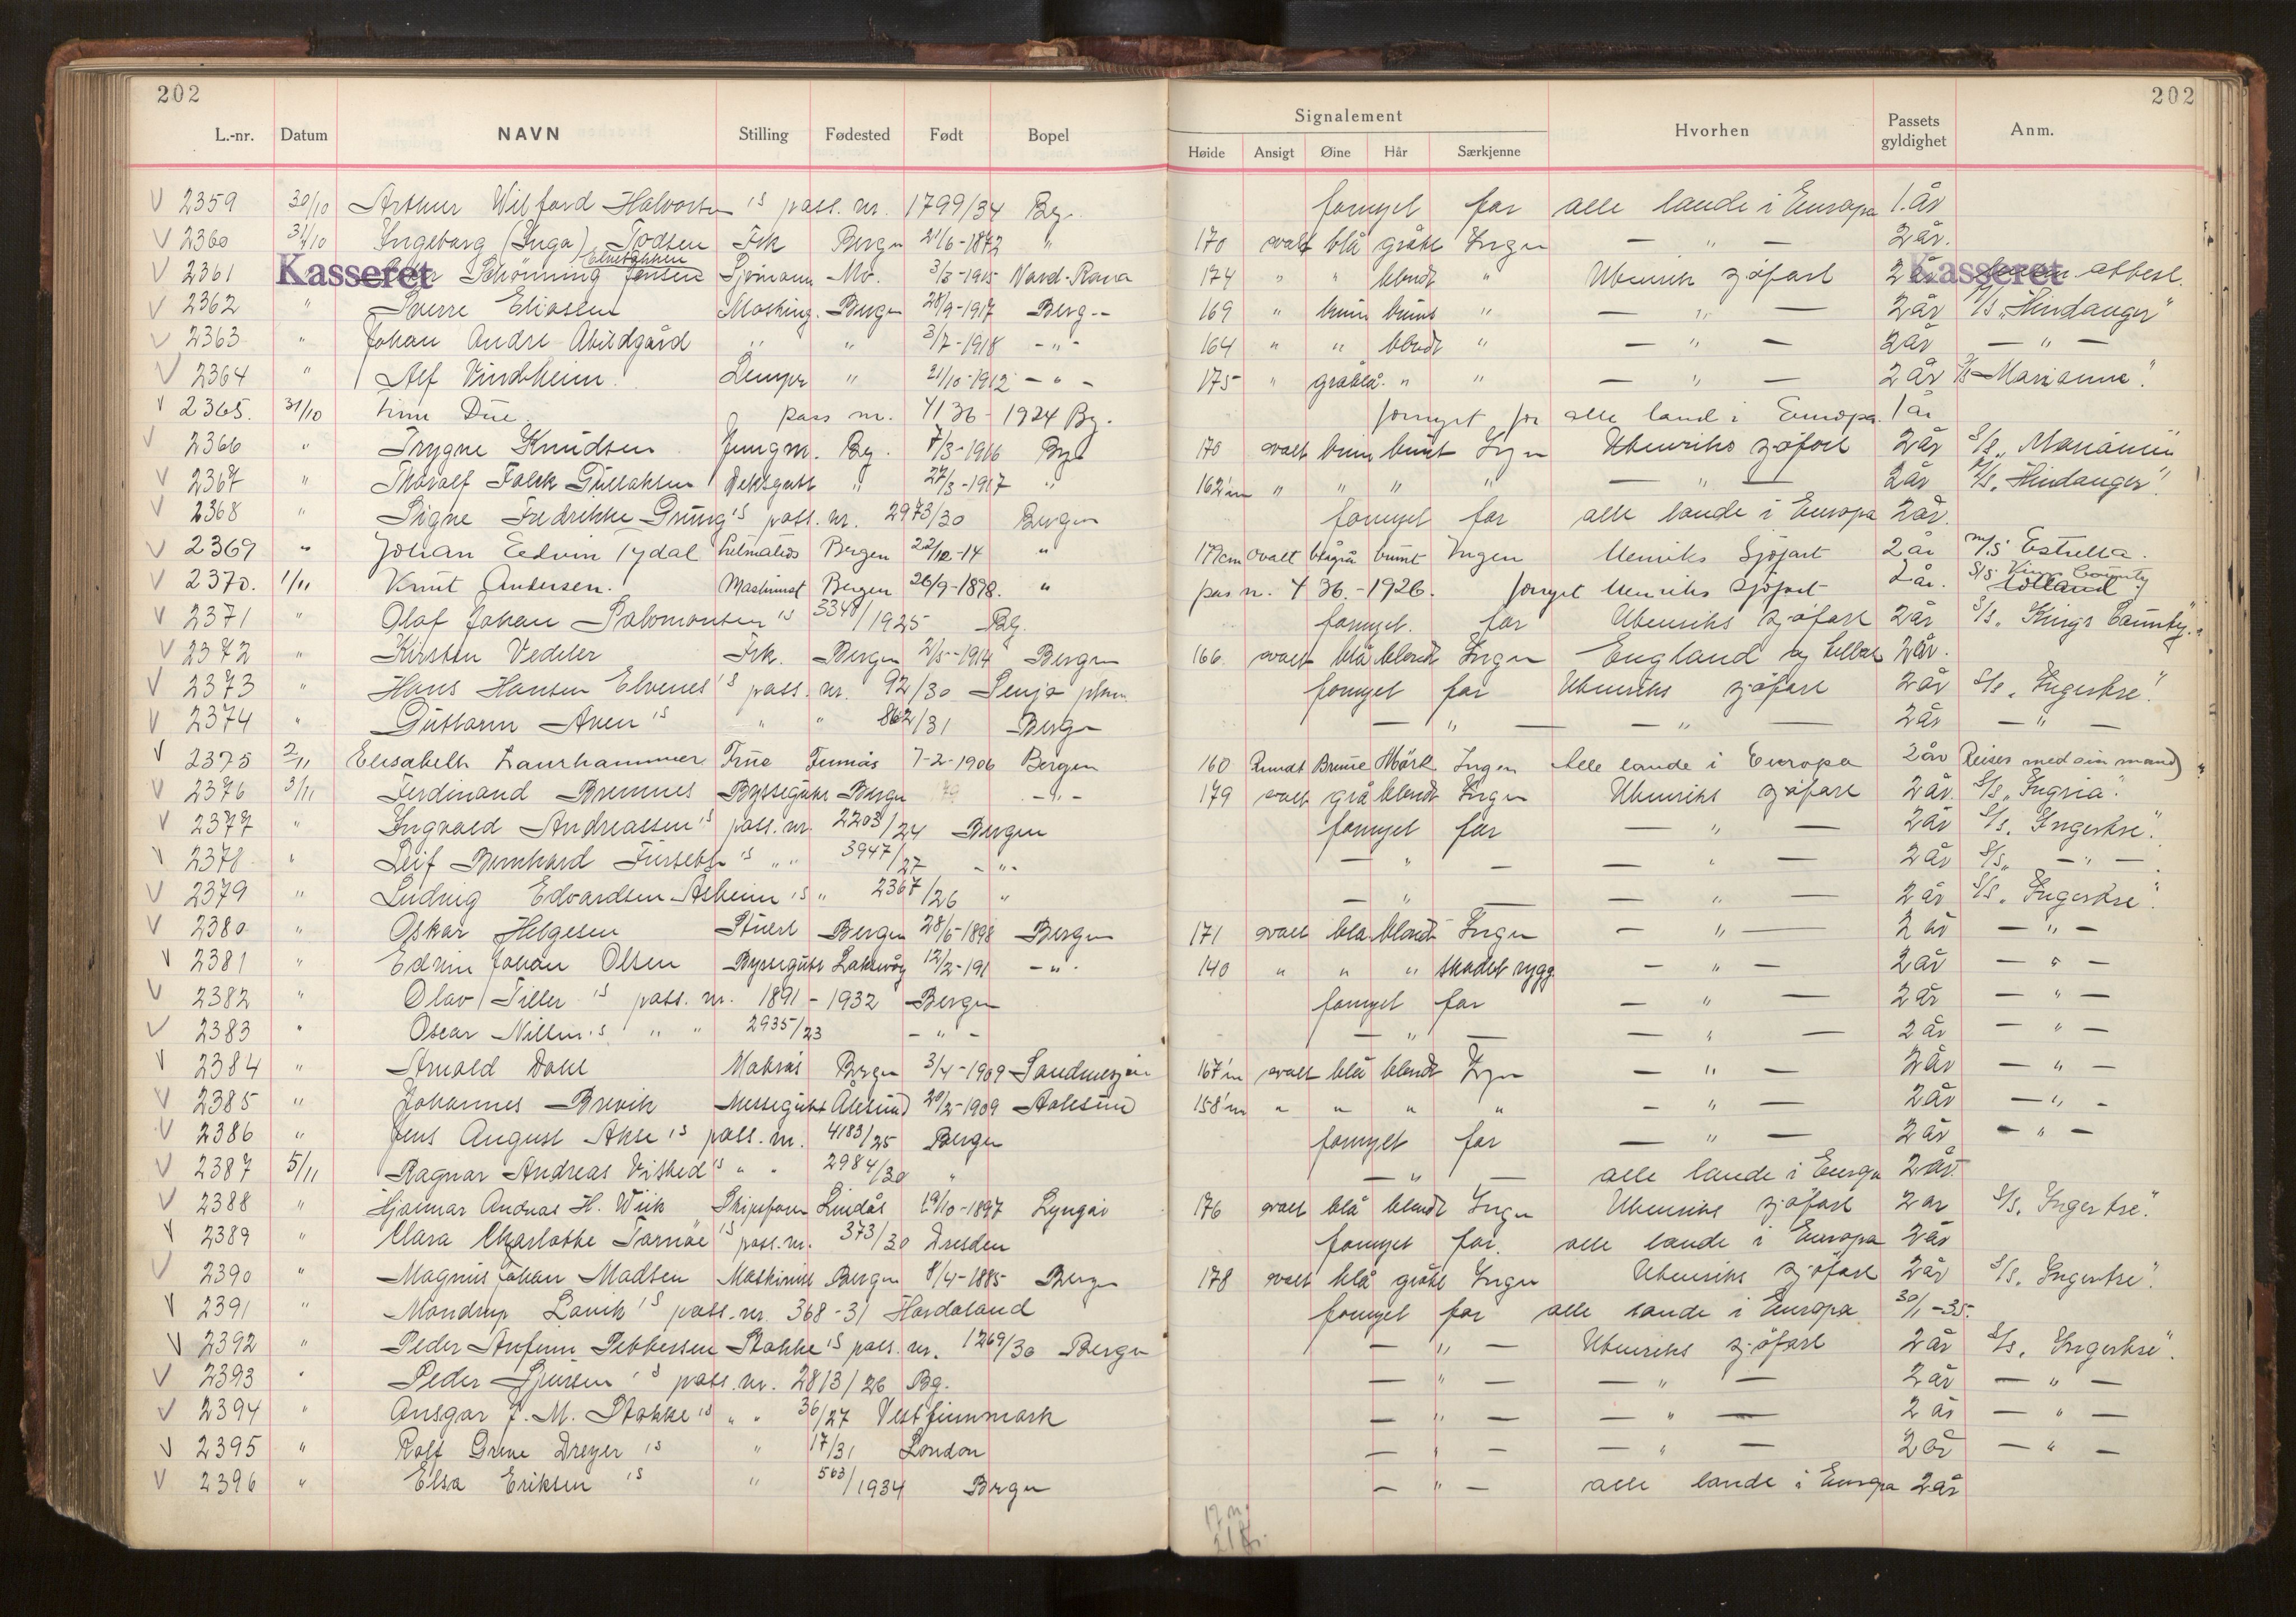 202
202
L.-nr. Datum NAVN Stilling Fødested Født Bopel
Signalement
Høide Ansigt Øine Hår Særkjenne Hvorhen Passets gyldighet Anm.
V 2359 30/10 Arthur Wilford Halvorsen 's pass. nr. 1799/34 Bg. fornyet for alle lande i Europa 1. år
V 2360 31/10 Ingeborg (Inga) Frk Bergen 21/6-1872 " 170 ovalt blå gråbl Ingen — " — 2 år.
V 2361 Kasseret Schønning Jensen Sjømann Mo. 3/3-1915 Nord-Rana 174 " " blondt " Utenriks sjøfart 2 år Kasseret
V 2362 " Sverre Eliassen Masking. Bergen 28/9-1917 Berg-- 169 " brun brunt " — " — 2 år M/s „Hindanger"
V 2363 " Johan Andre Abildgård " " 3/7-1918 - " - 164 " " blondt " — " — 2 år — " —
V 2364 " Alf Vindheim. Lemper " 21/10-1912 - " - 175 " gråblå " " — " — 2 år S/s Marianne".
V 2365. 31/10 Due. pass nr. 4136 - 1924 Bg. fornyet for alle land i Europa. 1 år
V 2366 " Trygve Knudsen Jungm. Bg. 7/3-1916 Bg. 170 ovalt brun brunt Ingen Utenriks sjøfart 2 år S/s „Marianne
V 2367 " Thoralf Falck Gullaksen Deksgutt " 27/3-1917 " 162 " " " " — " — 2 år M/s „Hindanger".
V 2368 " Signe Fredrikke Grung 's pass. nr. 2973/30 Bergen fornyet for alle lande i Europa 2 år.
V 2369 " Johan Edvin Tydal Bergen 22/12-14 " 179cm ovalt blågrå brunt Ingen Utenriks Sjøfart 2 år m/s Estrella.
V 2370. 1/11 Knut Andersen. Maskinist Bergen 26/9-1898. " pas nr. 436.-1926. fornyet Utenriks Sjøfart 2 år. S/S Kings County
V 2371 " Olaf Johan Salomonsen 's 3340/1925 Bg. fornyet. for Utenriks sjøfart 2 år S/s „Kings County".
V 2372 " Kirsten Vedeler Frk. Bergen 2/5-1914 Bergen 166 ovalt blå blondt Ingen England og tilbake 2 år.
V 2373 " Hans Hansen Elvenes 's pass. nr. 92/30 Senja fornyet for Utenriks sjøfart 2 år S/s „Ingertre".
V 2374 " Guttorm Aven 's " " 862/31 Bergen — " — — " — 2 år — " —
V 2375 2/11 Elisabeth Laurhammer Frue 7-2-1906 Bergen 160 Rundt Brune Mørk Ingen Alle lande i Europa 2 år Reiser med sin mand)
V 2376 3/11 Ferdinand Bremnes Byssegutt Bergen - " - 179 ovalt grå blondt Ingen Utenriks sjøfart 2 år. S/s „Ingria".
V 2377 " Ingvald Andreassen 's pass. nr. 2203/24 Bergen fornyet for — " — 2 år S/s. Ingertre".
V 2378 " Leif Bernhard 's " " 3947/27 - " - — " — — " — 2 år S/s „ — " —
V 2379 " Ludvig Edvardsen Asheim 's " 2367/26 " — " — — " — 2 år S/s „Ingertre".
V 2380 " Oskar Helgesen Stuert Bergen 28/6-1898 Bergen 171 ovalt blå blondt Ingen — " — 2 år — " —
V 2381 " Edvin Johan Olsen Byssegutt Laksevåg 12/2-191 - " - 140 " " " skadet rygg — " — 2 år — " —
V 2382 " Olav Tiller 's pass. nr. 1891 - 1932 Bergen fornyet for — " — 2 år — " —
V 2383 " Oscar Nilsen 's " " 2935/23 - " - — " — — " — 2 år — " —
V 2384 " Arnold Dahl Matros Bergen 3/4-1909 Sandnessjøen 167 ovalt blå blondt Ingen — " — 2 år — " —
V 2385 " Johannes Brevik Messegutt Ålesund 20/2-1909 Aalesund 158 " " " " — " — 2 år — " —
V 2386 " Jens August Akse 's pass. nr. 4183/25 Bergen fornyet for — " — 2 år — " —
V 2387 5/11 Ragnar Andreas Visted 's " " 2984/30 " — " — alle lande i Europa 2 år.
V 2388 " Hjalmar Andreas H. Wiik Skipsfører Lindås 19/10-1897 176 ovalt blå blondt Ingen Utenriks sjøfart 2 år S/s. Ingertre".
V 2389 " Clara Charlotte Tornøe 's pass. nr. 373/30 Dresden fornyet for. alle lande i Europa 2 år
V 2390 " Magnus Johan Madsen Maskinist Bergen 8/4-1885 Bergen 178 ovalt blå gråbl Ingen Utenriks sjøfart 2 år S/s. Ingertre".
V 2391 " Mondrup Lavik 's pass. nr. 368-31 Hordaland fornyet for alle lande i Europa 30/1-35.
V 2392 " Peder Anfinn Pettersen Stokke 's pass. nr. 1269/30 Bergen — " — Utenriks sjøfart 2 år S/s. Ingertre".
V 2393 " Peder 's pass. nr. 2813/26 Bg. — " — — " — 2 år — " —
V 2394 " Ansgar J. M. Stokke 's " " 36/27 Vestfinnmark — " — — " — 2 år — " —
V 2395 " Rolf Grieve Dreyer 's " 17/31 London — " — — " — 2 år — " —
V 2396 " Elsa Eriksen 's " 563/1934 Bergen — " — alle lande i Europa 2 år